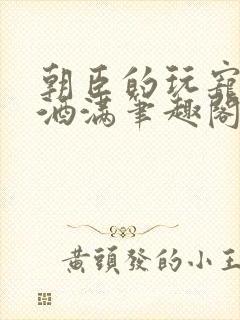 朝臣的玩寵
酒滿筆趣閣
黃頭發的小王